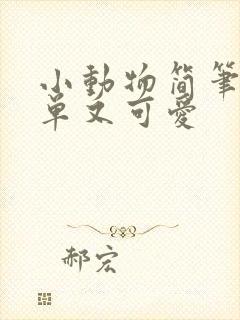 小動物简筆
單又可愛
郝宏